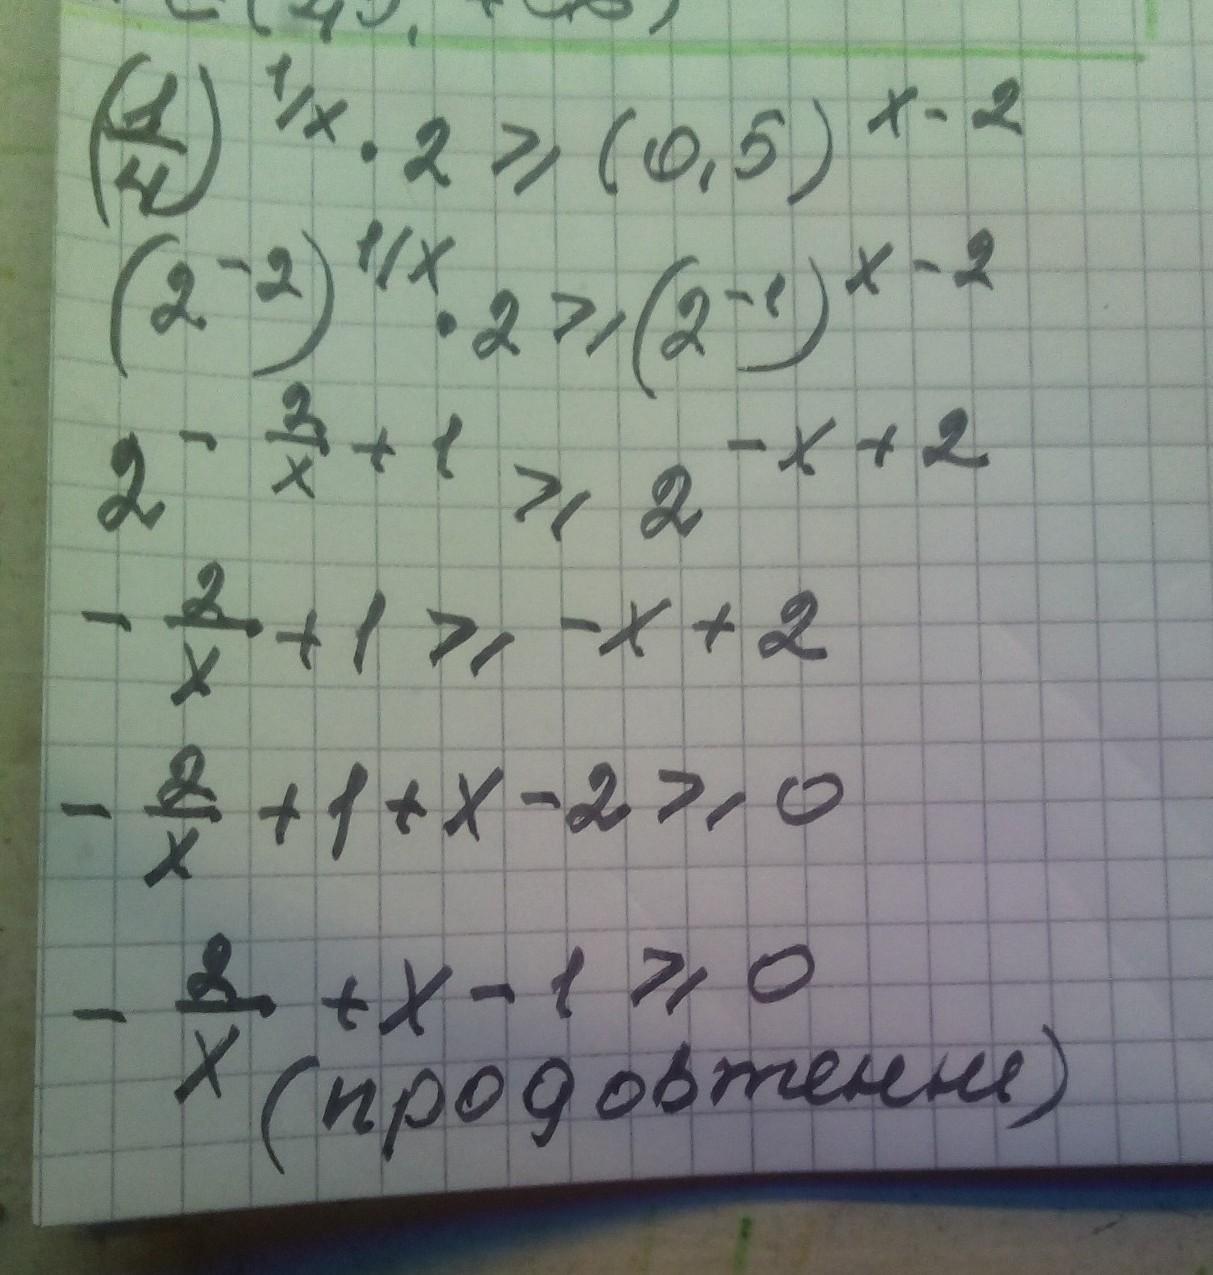 (1/4)^1/x · 2 ⩾ (0,5)^x-2
(2^-2)^1/x · 2 ⩾ (2^-1)^x-2
2^-2/x+1 ⩾ 2^-x+2
-2/x + 1 ⩾ -x + 2
-2/x + 1 + x - 2 ⩾ 0
-2/x + x - 1 ⩾ 0
(продовження)